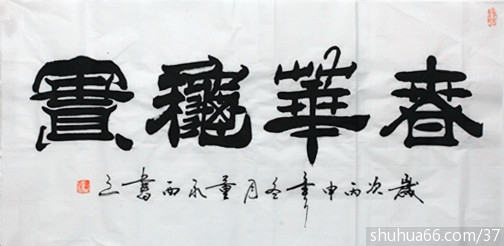 春華龝實
歲次丙申年冬月董永西書之
shuhua66.com/37